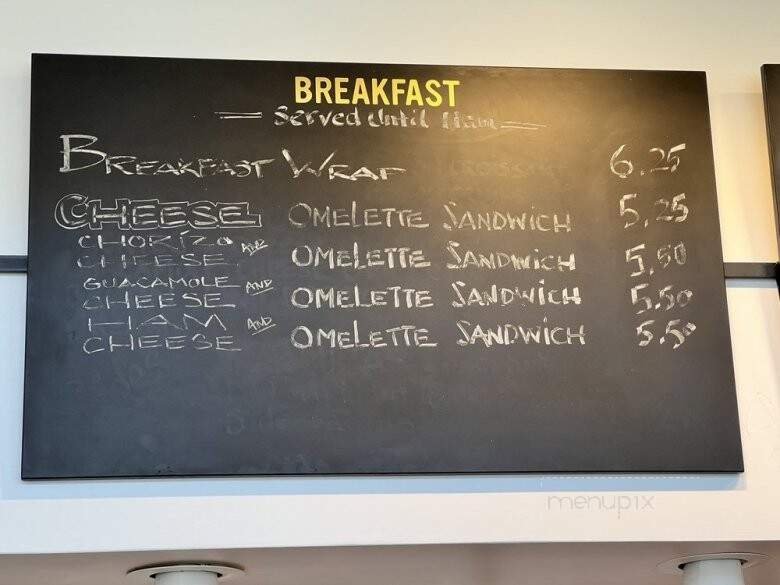 BREAKFAST
Served Until 11am
BREAKFAST WRAP 6.25
CHEESE OMELETTE SANDWICH 5.25
CHORIZO AND CHEESE OMELETTE SANDWICH 5.50
GUACAMOLE AND CHEESE OMELETTE SANDWICH 5.50
HAM AND CHEESE OMELETTE SANDWICH 5.50
menupix